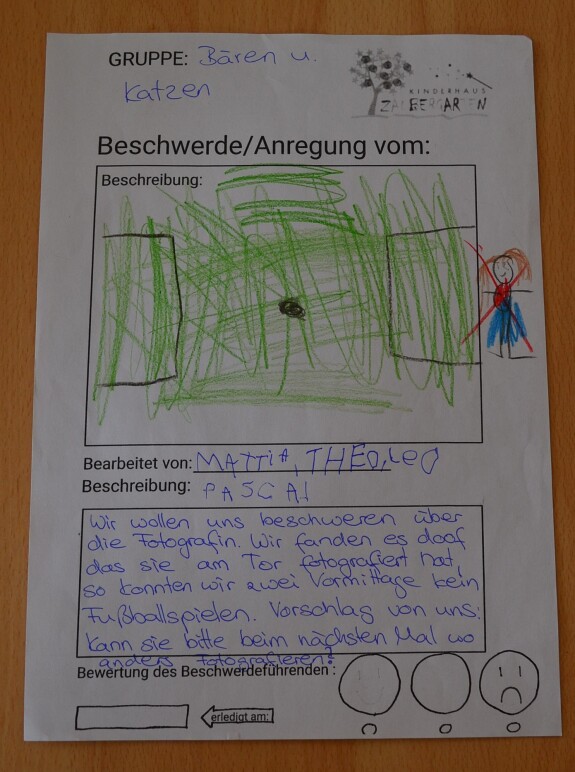 GRUPPE: Bären u.
Katzen
KINDERHAUS
ZAUBERGARTEN
Beschwerde/Anregung vom:
Beschreibung:
Bearbeitet von: MATTIA, THEO, LEO
Beschreibung: PASCAL
Wir wollen uns beschweren über
die Fotografin. Wir fanden es doof
das sie am Tor fotografiert hat,
so konnten wir zwei Vormittage kein
Fußballspielen. Vorschlag von uns:
Kann sie bitte beim nächsten Mal wo
anders Fotografieren?
Bewertung des Beschwerdeführenden :
erledigt am: